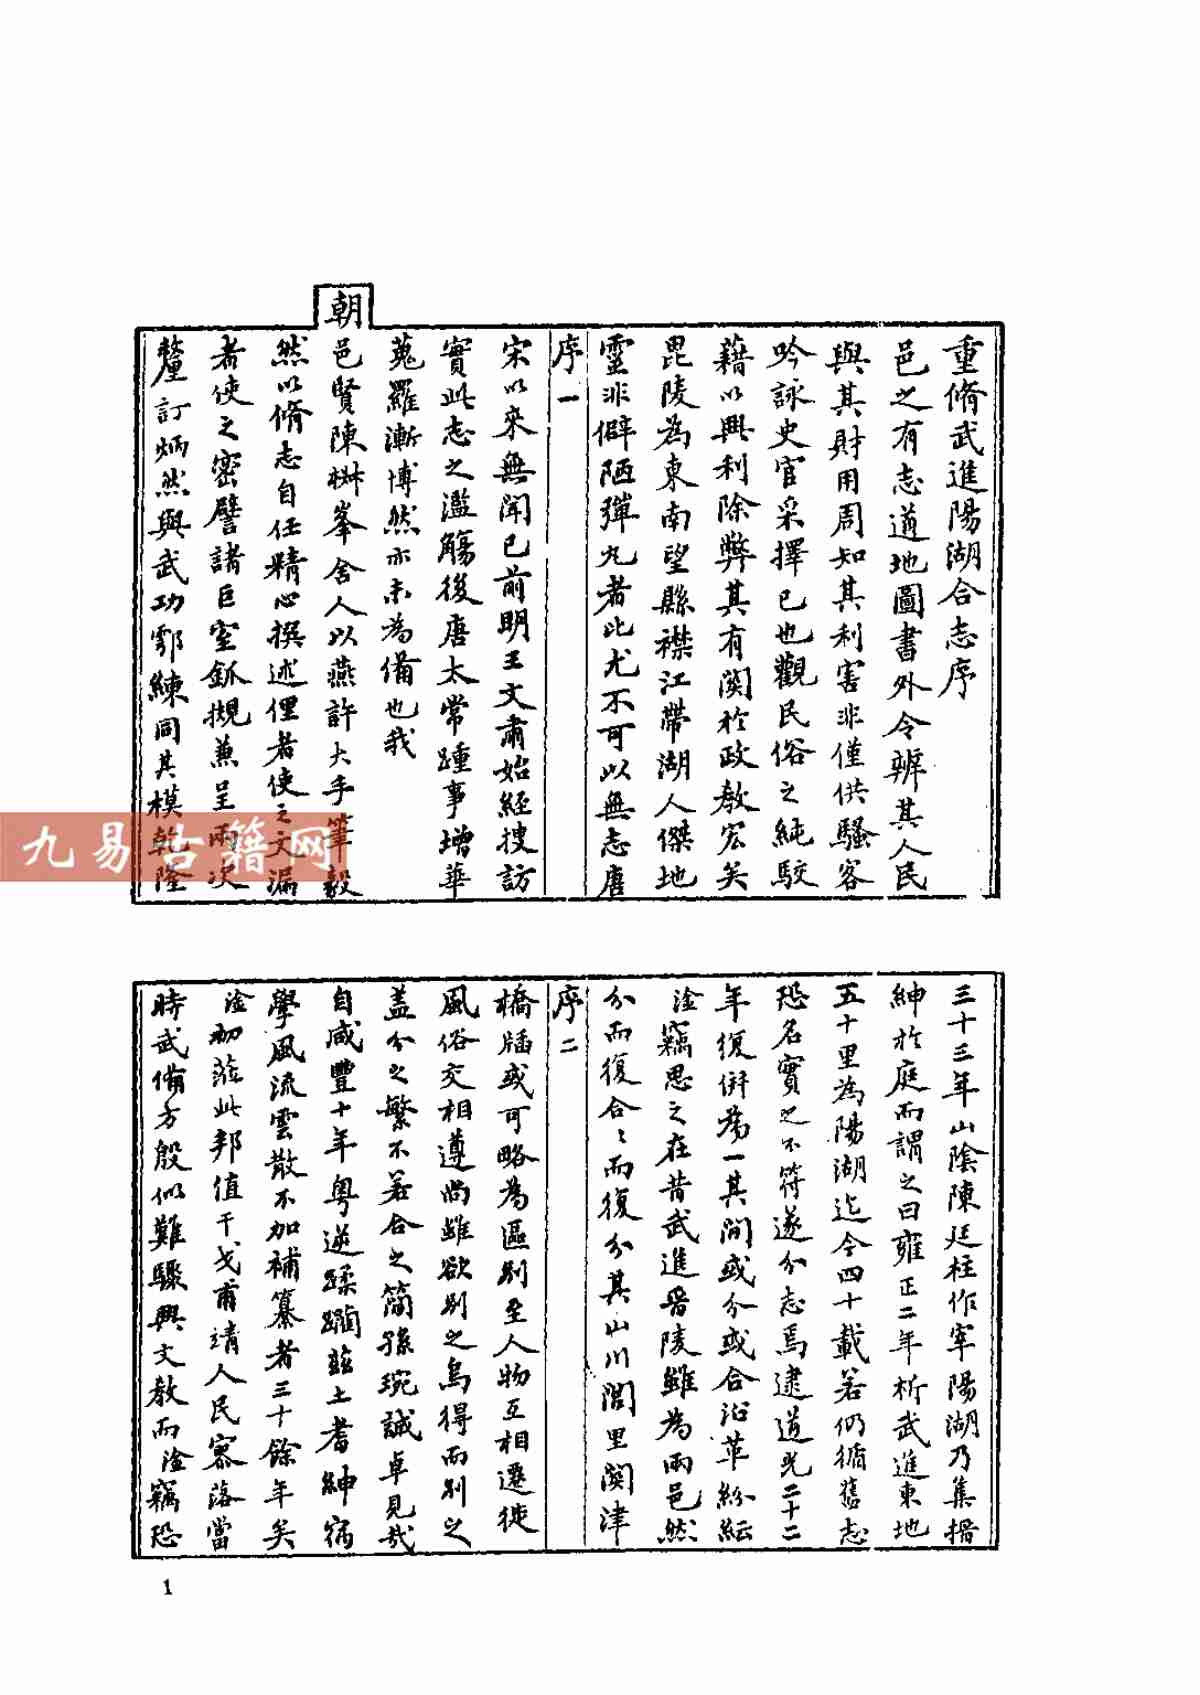 重脩武進陽湖合志序
邑之有志道地圖書外令辨其人民
與其財用周知其利害非僅供騷客
吟詠史官采擇已也觀民俗之純駁
藉以興利除弊其有關於政教宏矣
毘陵為東南望縣襟江帶湖人傑地
靈非僻陋彈丸者比尤不可以無志唐
序 一
宋以來無聞已前明王文肅始經搜訪
實此志之濫觴後唐太常踵事增華
蒐羅漸博然亦未為備也我
朝
邑賢陳楙峯舍人以燕許大手筆毅
然以脩志自任精心撰述俚者使之文漏
者使之密譬諸巨室釽摫兼呈兩次
釐訂炳然與武功鄠練同其模乾隆
三十三年山陰陳廷柱作宰陽湖乃集搢
紳於庭而謂之曰雍正二年析武進東地
五十里為陽湖迄今四十載若仍循舊志
恐名實之不符遂分志焉逮道光二十二
年復併為一其間或分或合沿革紛紜
淦竊思之在昔武進晉陵雖為兩邑然
分而復合合而復分其山川閭里關津
序 二
橋牐或可略為區別至人物互相遷徙
風俗交相遵尚雖欲別之烏得而別之
蓋分之繁不若合之簡孫琬誠卓見哉
自咸豐十年粵逆蹂躪茲土耆紳宿
學風流雲散不加補纂者三十餘年矣
淦初蒞此邦值干戈甫靖人民寥落當
時武備方殷似難驟興文教而淦竊恐
1
九易古籍网